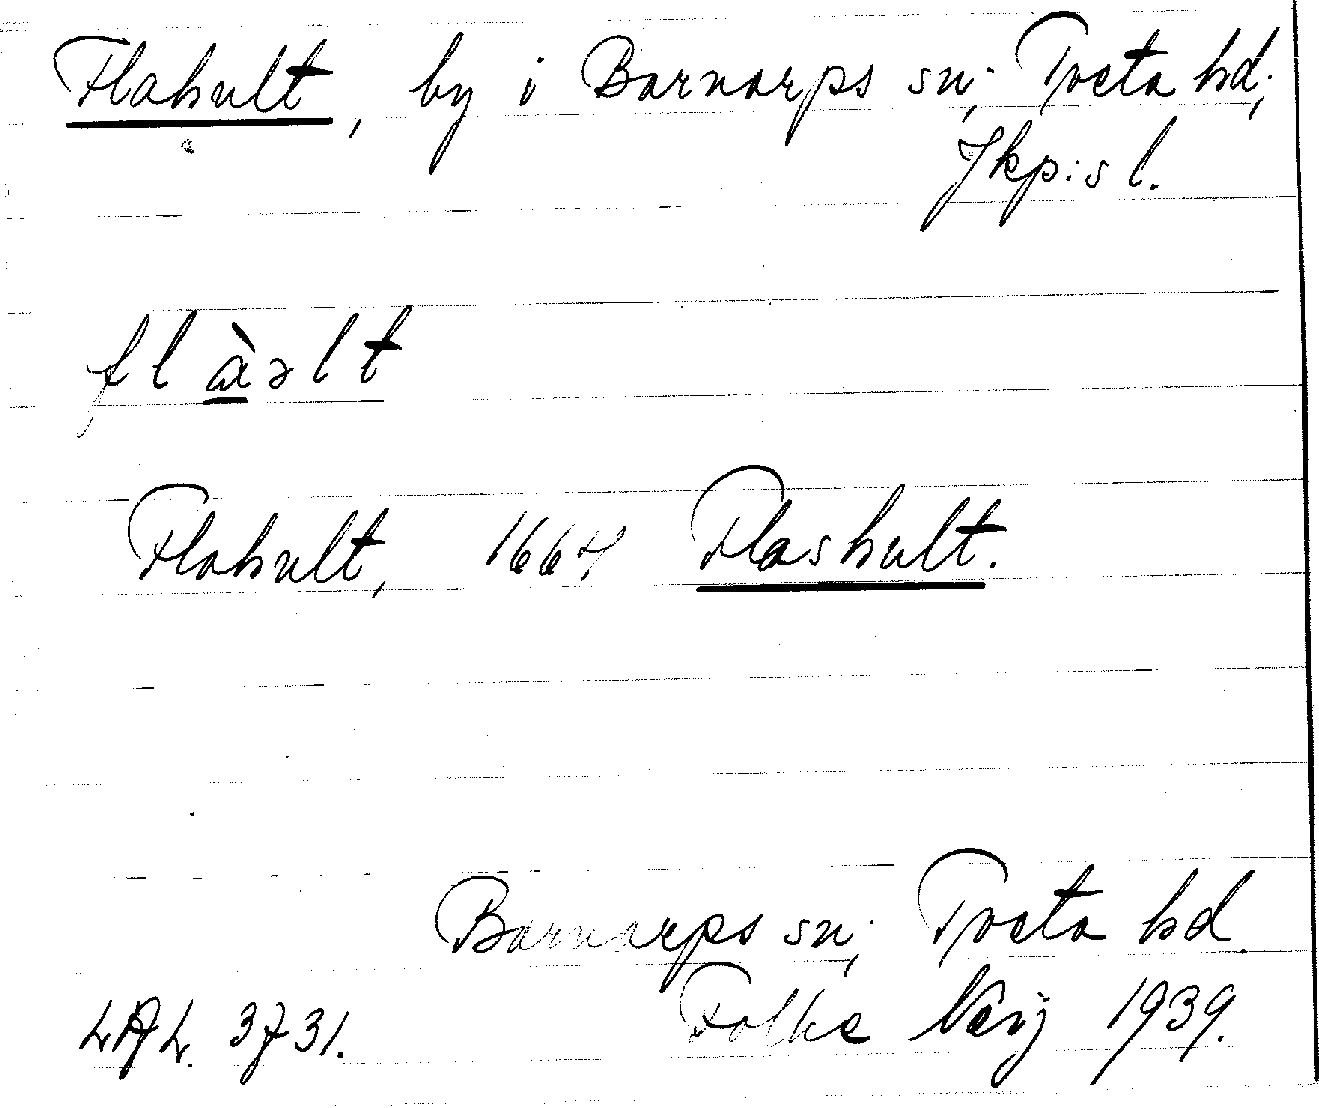 Flahult, by i Barnarps sn, Tveta hd,
Jkp:s l.
flàəlt
Flahult, 1664 Flashult.
Barnarps sn, Tveta hd.
LAL. 3731. Folke 1939.